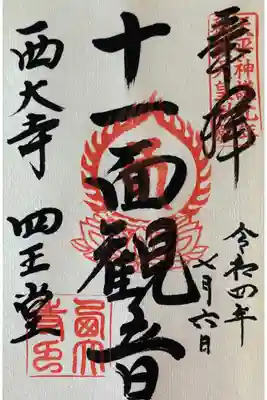 奉拝
令和四年
七月六日
十一面観音
西大寺 四王堂